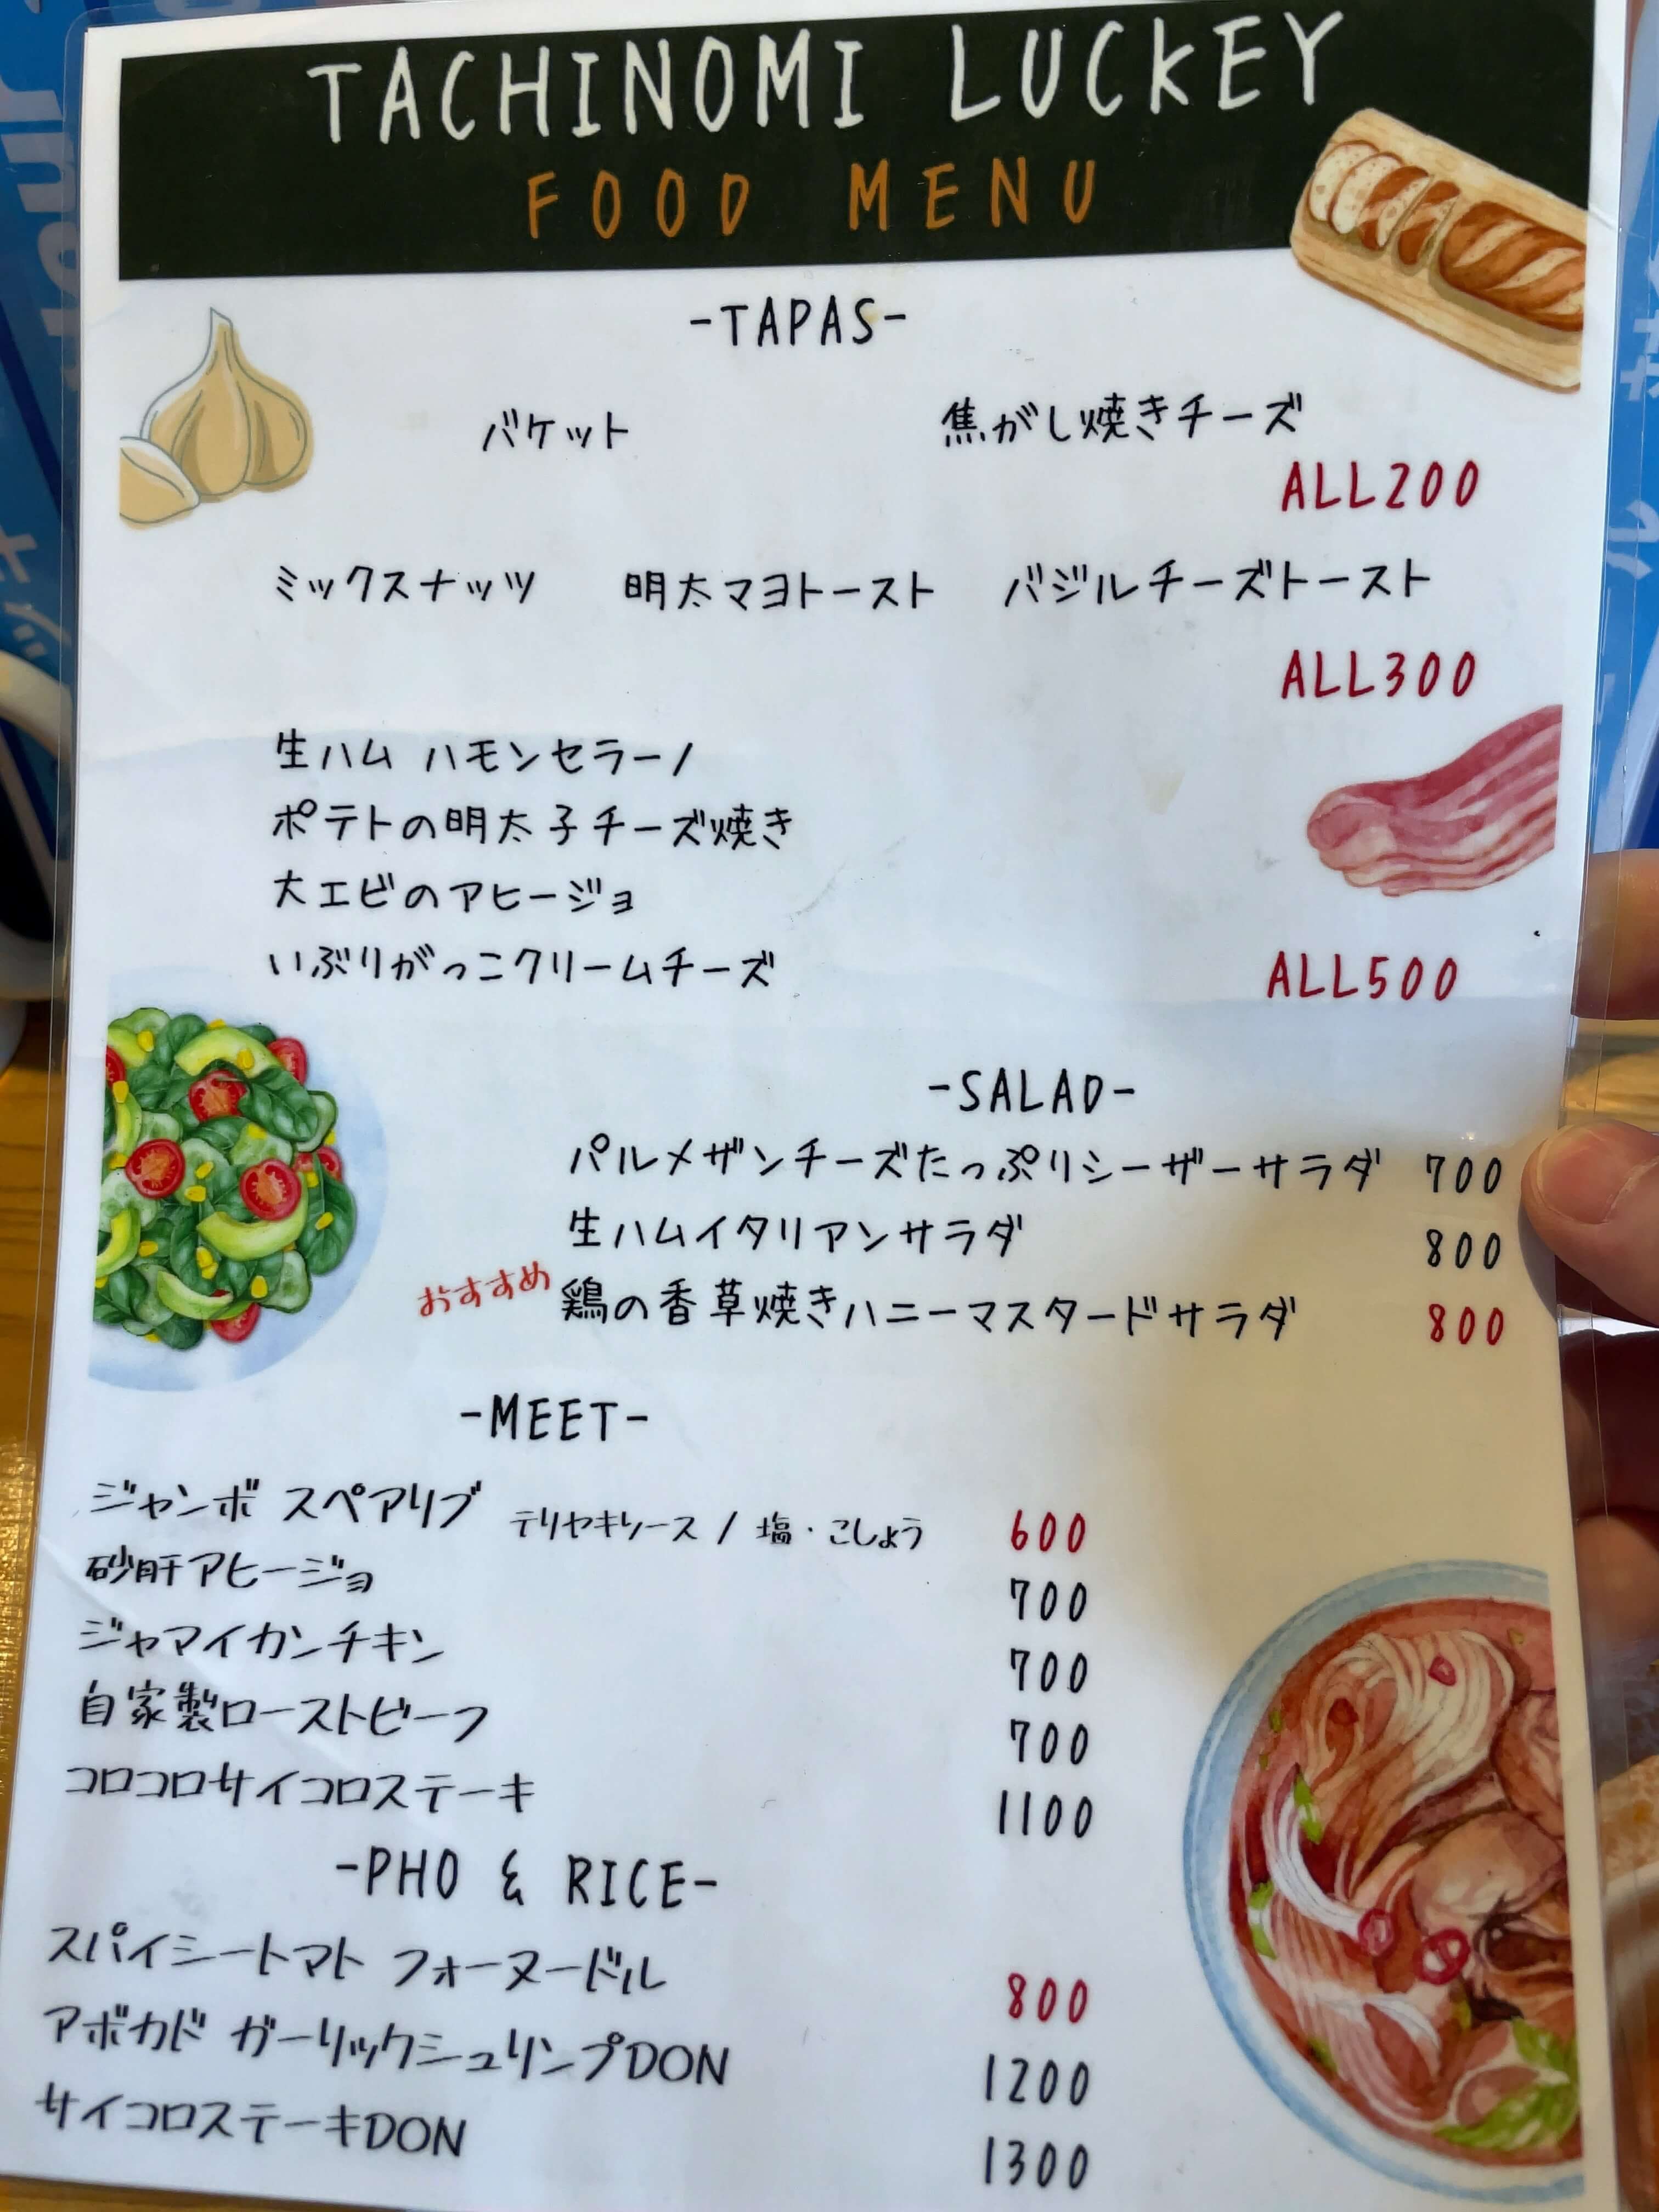 TACHINOMI LUCKEY
FOOD MENU
-TAPAS-
バケット 焦がし焼きチーズ
ALL200
ミックスナッツ 明太マヨトースト バジルチーズトースト
ALL300
生ハム ハモンセラーノ
ポテトの明太子チーズ焼き
大エビのアヒージョ
いぶりがっこクリームチーズ ALL500
-SALAD-
パルメザンチーズたっぷりシーザーサラダ 700
生ハムイタリアンサラダ 800
おすすめ 鶏の香草焼きハニーマスタードサラダ 800
-MEET-
ジャンボ スペアリブ テリヤキソース / 塩・こしょう 600
砂肝アヒージョ 700
ジャマイカンチキン 700
自家製ローストビーフ 700
コロコロサイコロステーキ 1100
-PHO & RICE-
スパイシートマト フォーヌードル 800
アボカド ガーリックシュリンプDON 1200
サイコロステーキDON 1300